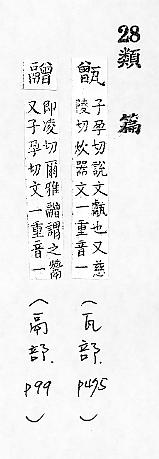 28
類
篇
甑
子孕切說文甗也又慈
陵切炊器文一重音一
(瓦部. p475)
䰝
即凌切爾雅䰝謂之鬵
又子孕切文一重音一
(鬲部. p99)